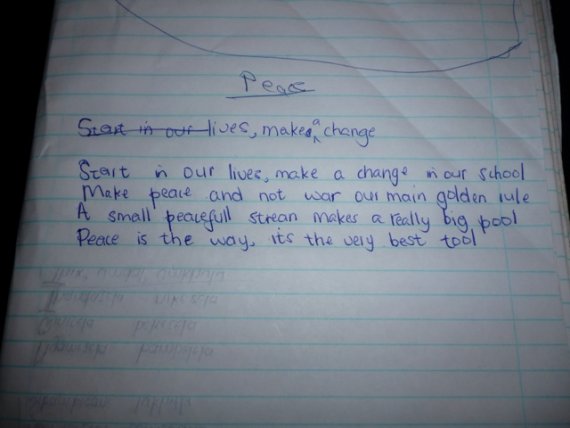 Peace
Start in our lives, make a change
Start in our lives, make a change in our school
Make peace and not war our main golden rule
A small peacefull strean makes a really big pool
Peace is the way, its the very best tool